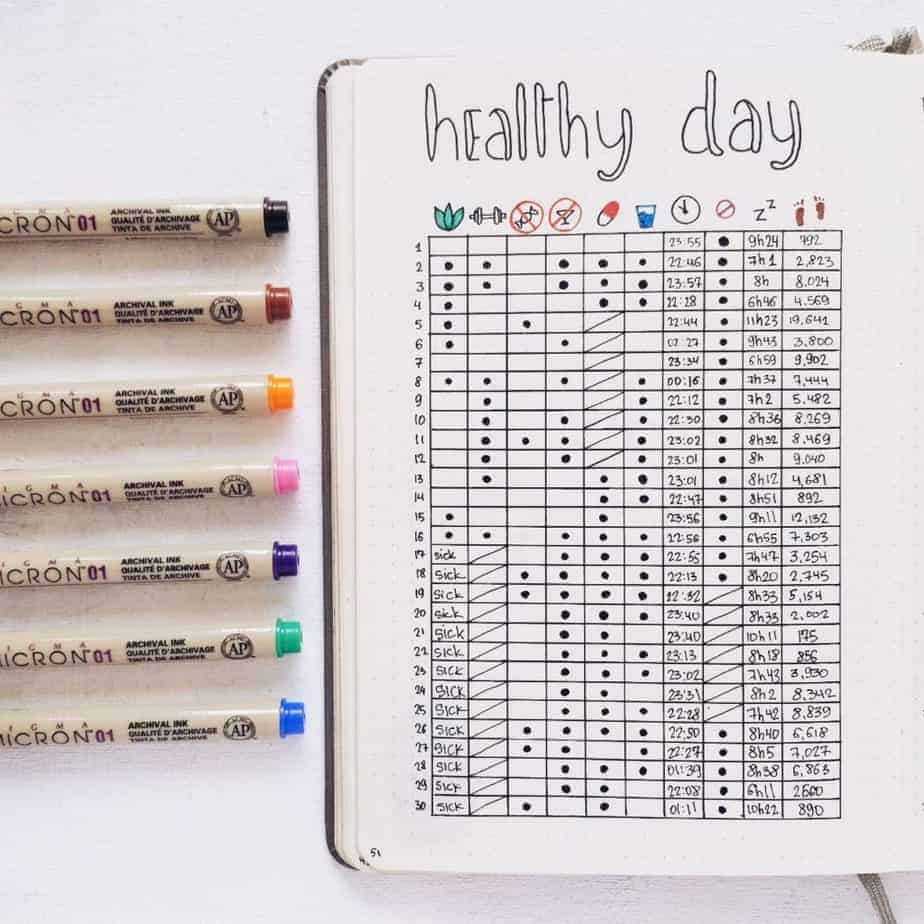 healthy day
zzz
1 23:55 9h24 792
2 22:46 7h1 2,823
3 23:57 8h 8.024
4 22:28 6h46 4.569
5 22:44 11h23 19,641
6 9h43 3,800
7 23:34 6h59 9,902
8 00:16 7h37 7,444
9 22:12 7h2 5.482
10 22:30 8h36 8,269
11 23:02 8h32 8.469
12 23:01 8h 9.040
13 23:01 8h12 4,681
14 22:47 8h51 892
15 23:56 9h11 12,132
16 22:56 6h55 7,303
17 sick 22:55 7h47 3,254
18 SICK 22:13 8h20 2,745
19 SICK 8h33 5,154
20 SICK 23:40 8h33 2,002
21 SICK 23:40 10h11 175
22 SICK 23:13 8h18 856
23 SICK 23:02 7h43 3,930
24 SICK 23:31 8h2 8,342
25 SICK 22:28 7h42 8,839
26 SICK 22:50 8h40 6,618
27 SICK 22:27 8h5 7,027
28 SICK 01:39 8h38 6,863
29 SICK 22:08 6h11 2560
30 SICK 01:11 10h22 890
51
G M A
CRON 01
ARCHIVAL INK
QUALITÉ D'ARCHIVAGE
TINTA DE ARCHIVO
AP
G M A
CRON 01
ARCHIVAL INK
QUALITÉ D'ARCHIVAGE
TINTA DE ARCHIVO
AP
G M A
CRON 01
ARCHIVAL INK
QUALITÉ D'ARCHIVAGE
TINTA DE ARCHIVO
AP
G M A
ICRON 01
ARCHIVAL INK
QUALITÉ D'ARCHIVAGE
TINTA DE ARCHIVO
AP
I G M A
ICRON 01
ARCHIVAL INK
QUALITÉ D'ARCHIVAGE
TINTA DE ARCHIVO
AP
I G M A
ICRON 01
ARCHIVAL INK
QUALITÉ D'ARCHIVAGE
TINTA DE ARCHIVO
AP
I G M A
MICRON 01
ARCHIVAL INK
QUALITÉ D'ARCHIVAGE
TINTA DE ARCHIVO
AP